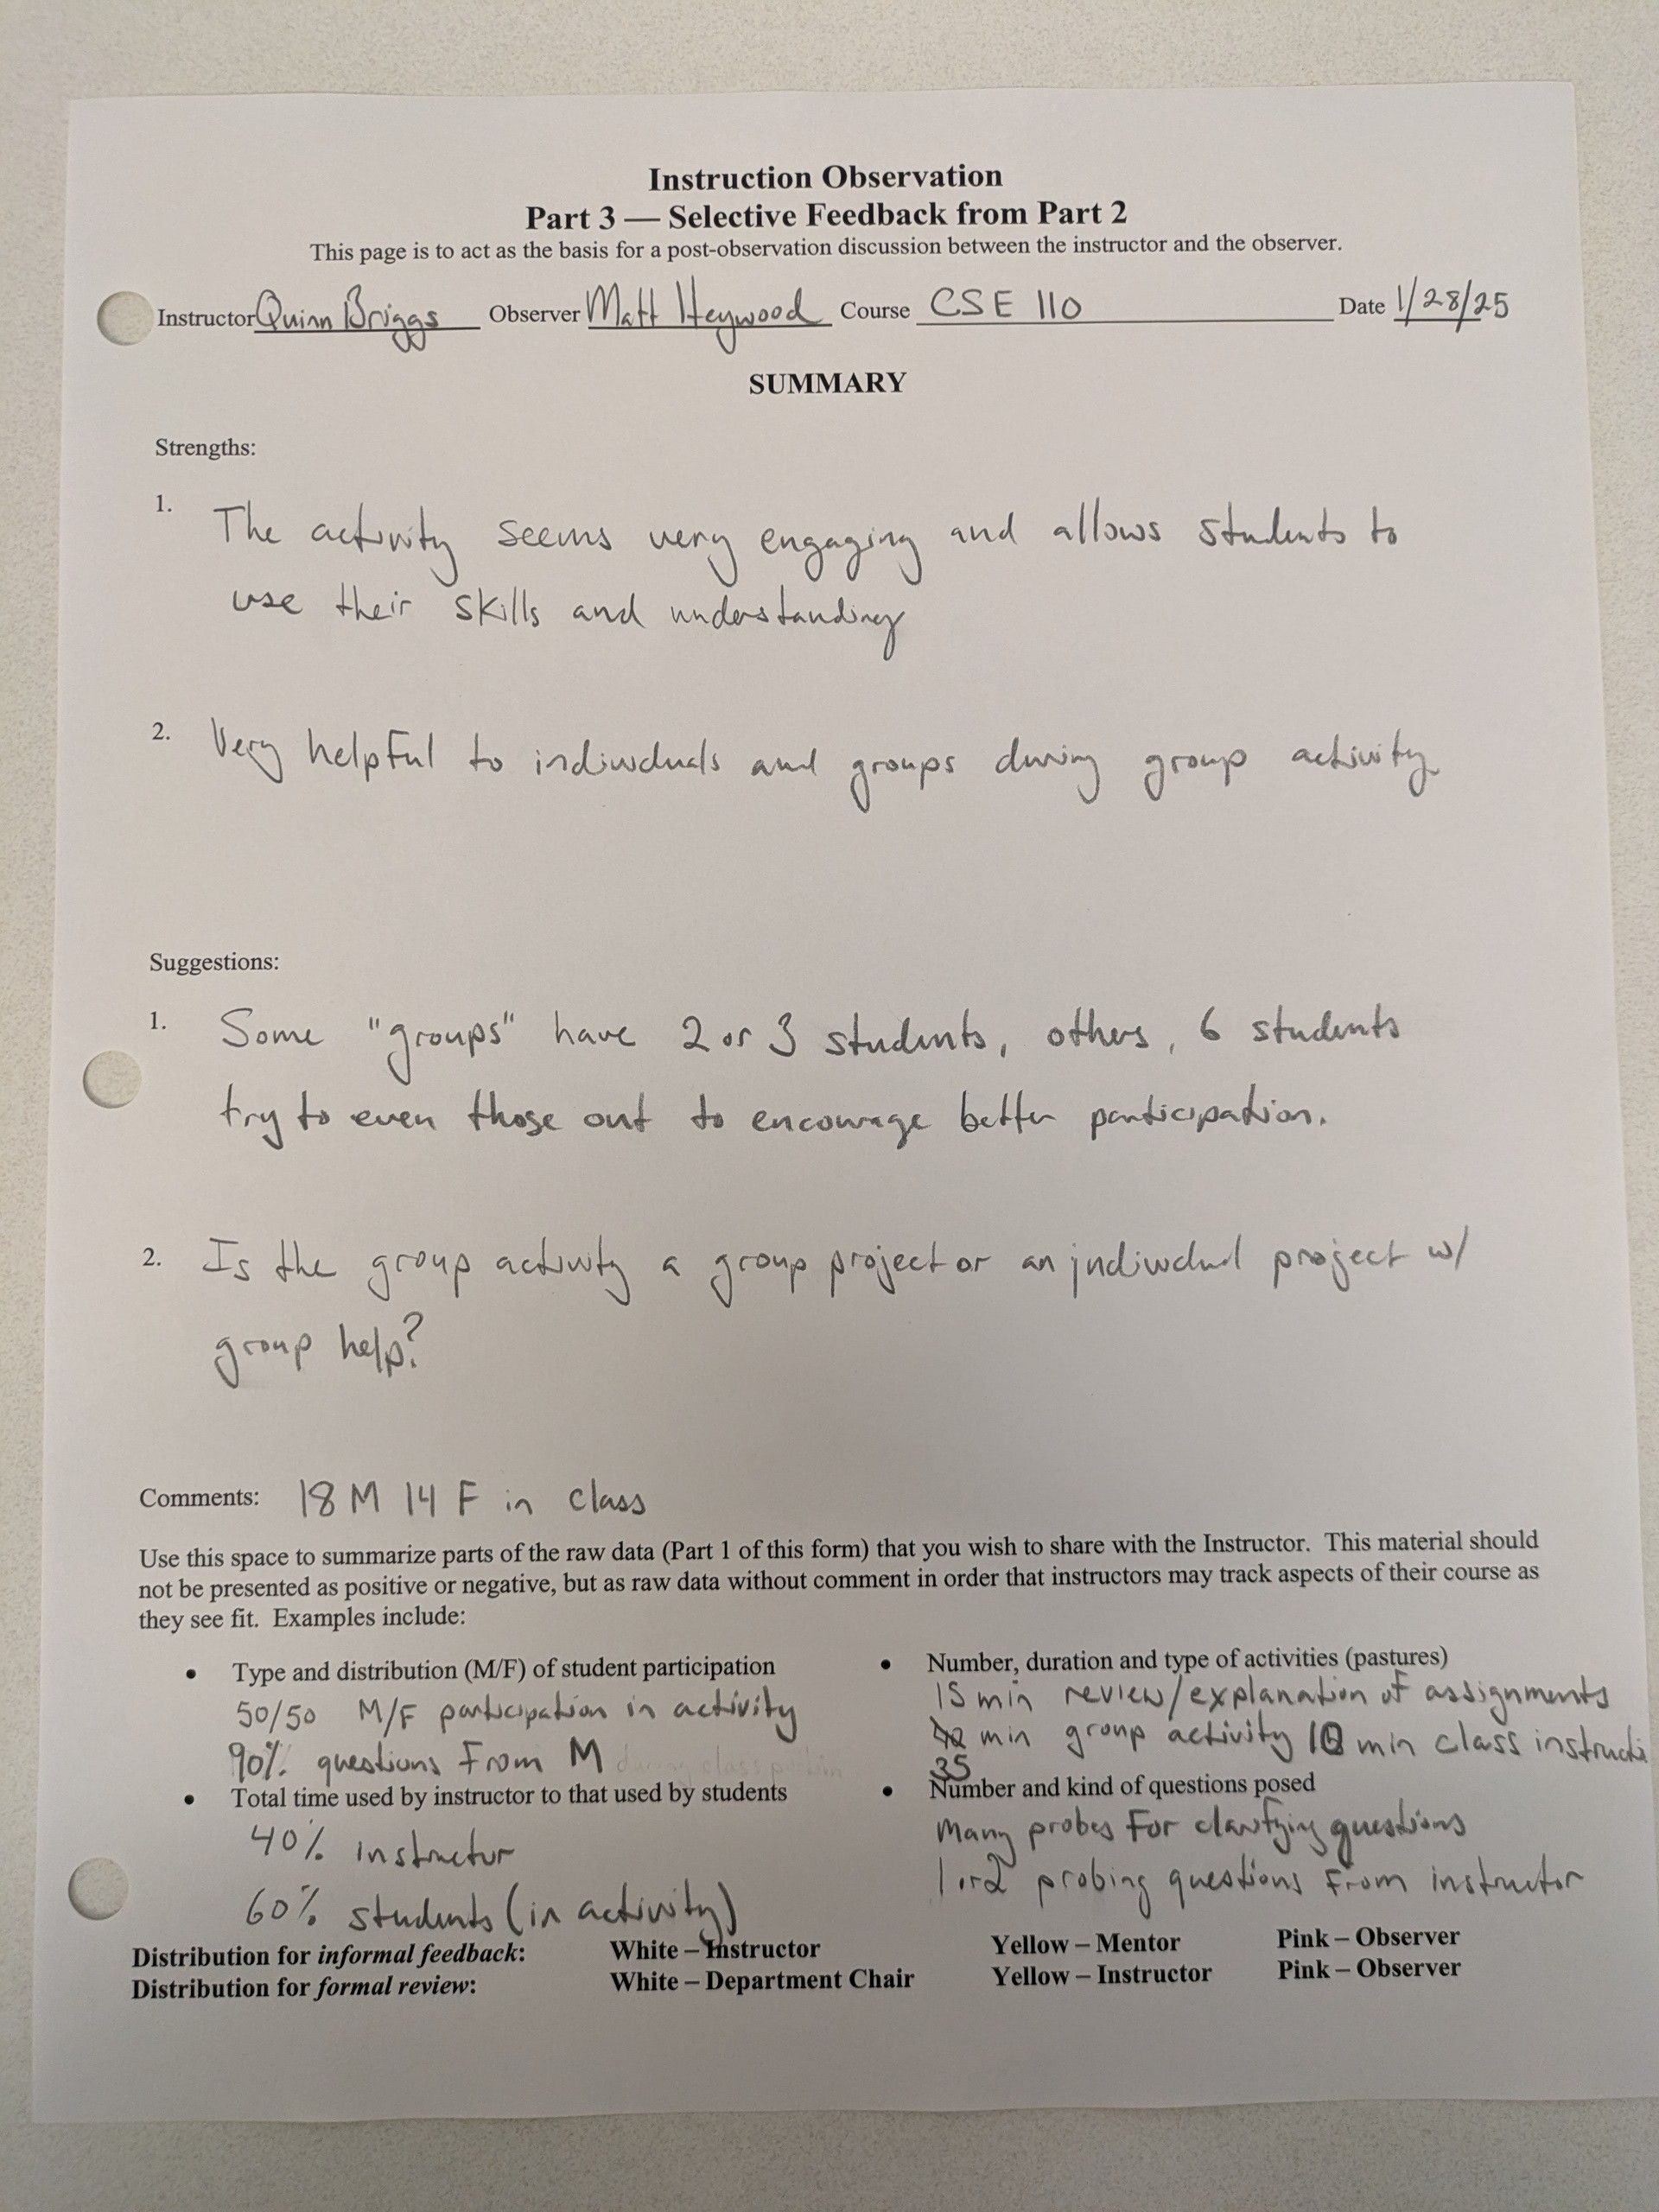 Instruction Observation
Part 3 — Selective Feedback from Part 2
This page is to act as the basis for a post-observation discussion between the instructor and the observer.
Instructor Quinn Briggs Observer Matt Heywood Course CSE 110 Date 1/28/25
SUMMARY
Strengths:
1. The activity seems very engaging and allows students to
use their skills and understanding
2. Very helpful to individuals and groups during group activity
Suggestions:
1. Some "groups" have 2 or 3 students, others, 6 students
try to even those out to encourage better participation.
2. Is the group activity a group project or an individual project w/
group help?
Comments: 18 M 14 F in class
Use this space to summarize parts of the raw data (Part 1 of this form) that you wish to share with the Instructor. This material should
not be presented as positive or negative, but as raw data without comment in order that instructors may track aspects of their course as
they see fit. Examples include:
• Type and distribution (M/F) of student participation
50/50 M/F participation in activity
90% questions from M
• Total time used by instructor to that used by students
40% instructor
60% students (in activity)
• Number, duration and type of activities (pastures)
15 min review/explanation of assignments
min group activity 10 min class instructi
35
• Number and kind of questions posed
Many probes for clarifying questions
1 or 2 probing questions from instructor
Distribution for informal feedback: White – Instructor Yellow – Mentor Pink – Observer
Distribution for formal review: White – Department Chair Yellow – Instructor Pink – Observer